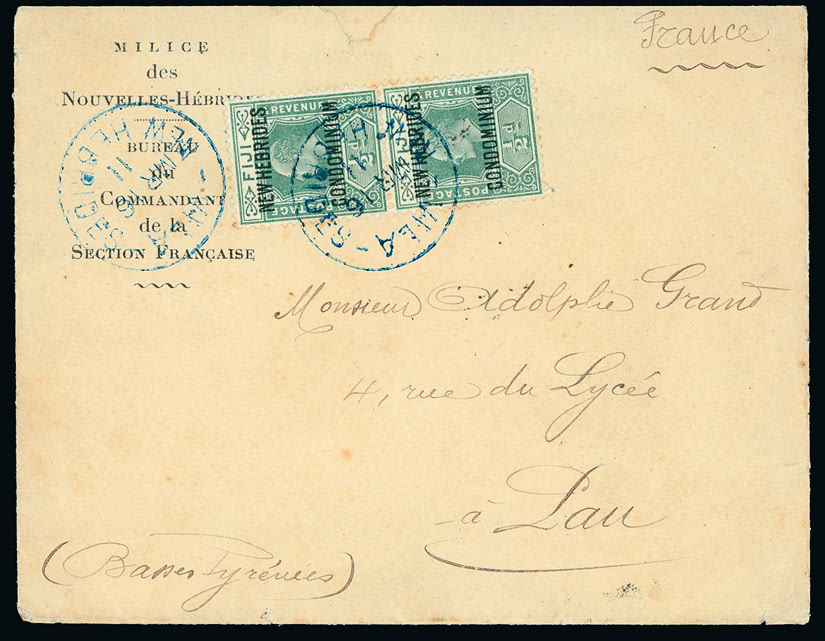 MILICE
des
NOUVELLES-HÉBRIDES
BUREAU
du
COMMANDANT
de la
SECTION FRANÇAISE
France
REVENUE
FIJI
NEW HEBRIDES
CONDOMINIUM
POSTAGE
REVENUE
NEW HEBRIDES
CONDOMINIUM
½D
POSTAGE
VILA
NEW HEBRIDES
MR 6
11
VILA
Monsieur Adolphe Grand
4, rue du Lycée
à Pau
(Basses Pyrénées)